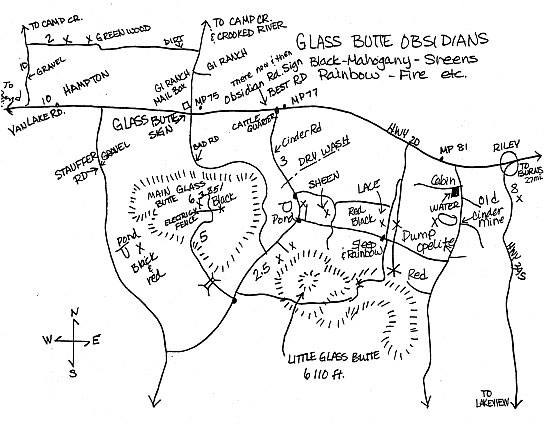 GLASS BUTTE OBSIDIANS
Black-Mahogany-Sheens
Rainbow - Fire etc.
TO CAMP CR.
2 x x GREENWOOD
DIRT
10
GRAVEL
TO CAMP CR.
& CROOKED RIVER
GI RANCH
GI RANCH
MAIL BOX
There now is then
Obsidian Rd. Sign
BEST RD
HAMPTON
10
VAN LAKE RD.
GLASS BUTTE
SIGN
MP75
CATTLE
GUARDER
MP77
HWY 20
MP 81
RILEY
TO BURNS
27mi.
STAUFFER
RD
GRAVEL
BAD RD
Cinder Rd
3
DRY WASH
MAIN GLASS
BUTTE
Black
ELECTRIC
FENCE
5
SHEEN
LACE
Pond
Red
Black
Cabin
WATER
Old
Cinder
mine
8
X
HWY 395
Pond
U X
Black
&
red
X X
2.5
Rainbow
Dump
opelite
Red
N
W E
S
LITTLE GLASS BUTTE
6110 ft.
TO
LAKEVIEW